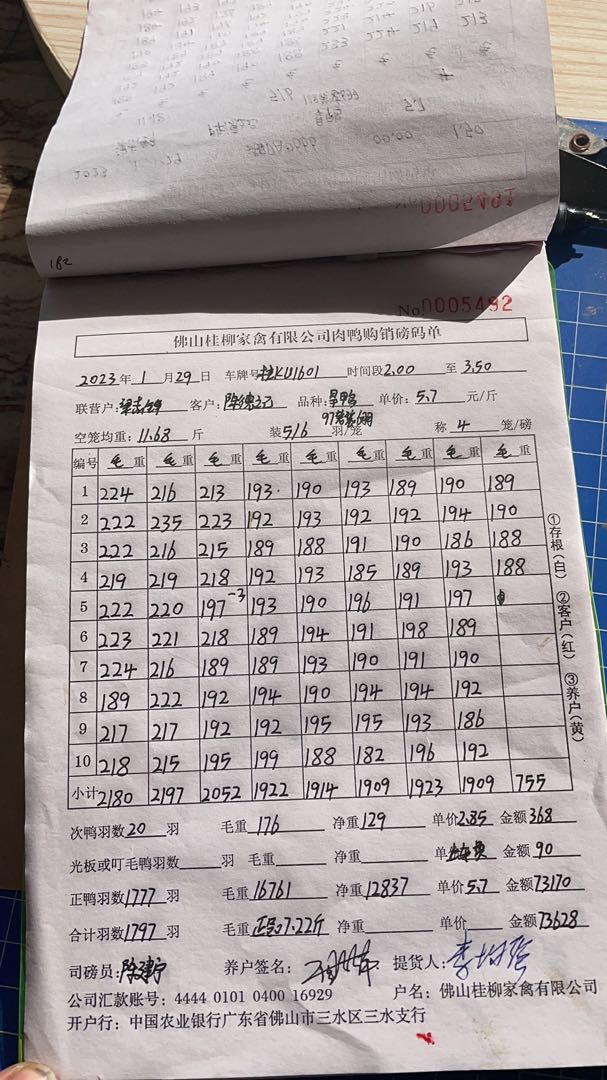 182
No 0005492
佛山桂柳家禽有限公司肉鸭购销磅码单
2023年 1 月 29 日 车牌号 桂KU1601 时间段 2.00 至 3.50
联营户: 客户: 品种: 单价: 5.7 元/斤
空笼均重: 11.68 斤 装 5/6 羽/笼 称 4 笼/磅
编号 毛重 毛重 毛重 毛重 毛重 毛重 毛重 毛重 毛重
1 224 216 213 193 190 193 189 190 189
2 222 235 223 192 193 192 192 194 190
3 222 216 215 189 188 191 190 186 188
4 219 219 218 192 193 185 189 193 188
5 222 220 197-3 193 190 196 191 197
6 223 221 218 189 194 191 198 189
7 224 216 189 189 193 190 191 190
8 189 222 192 194 190 194 194 192
9 217 217 192 192 195 195 193 186
10 218 215 195 199 188 182 196 192
小计 2180 2197 2052 1922 1914 1909 1923 1909 755
①存根(白) ②客户(红) ③养户(黄)
次鸭羽数 20 羽 毛重 176 净重 129 单价 2.85 金额 368
光板或叮毛鸭羽数 羽 毛重 净重 单 金额 90
正鸭羽数 1777 羽 毛重 16761 净重 12837 单价 5.7 金额 73170
合计羽数 1797 羽 毛重 正品7.22斤 净重 单价 金额 73628
司磅员: 养户签名: 提货人:
公司汇款账号: 4444 0101 0400 16929 户名: 佛山桂柳家禽有限公司
开户行: 中国农业银行广东省佛山市三水区三水支行